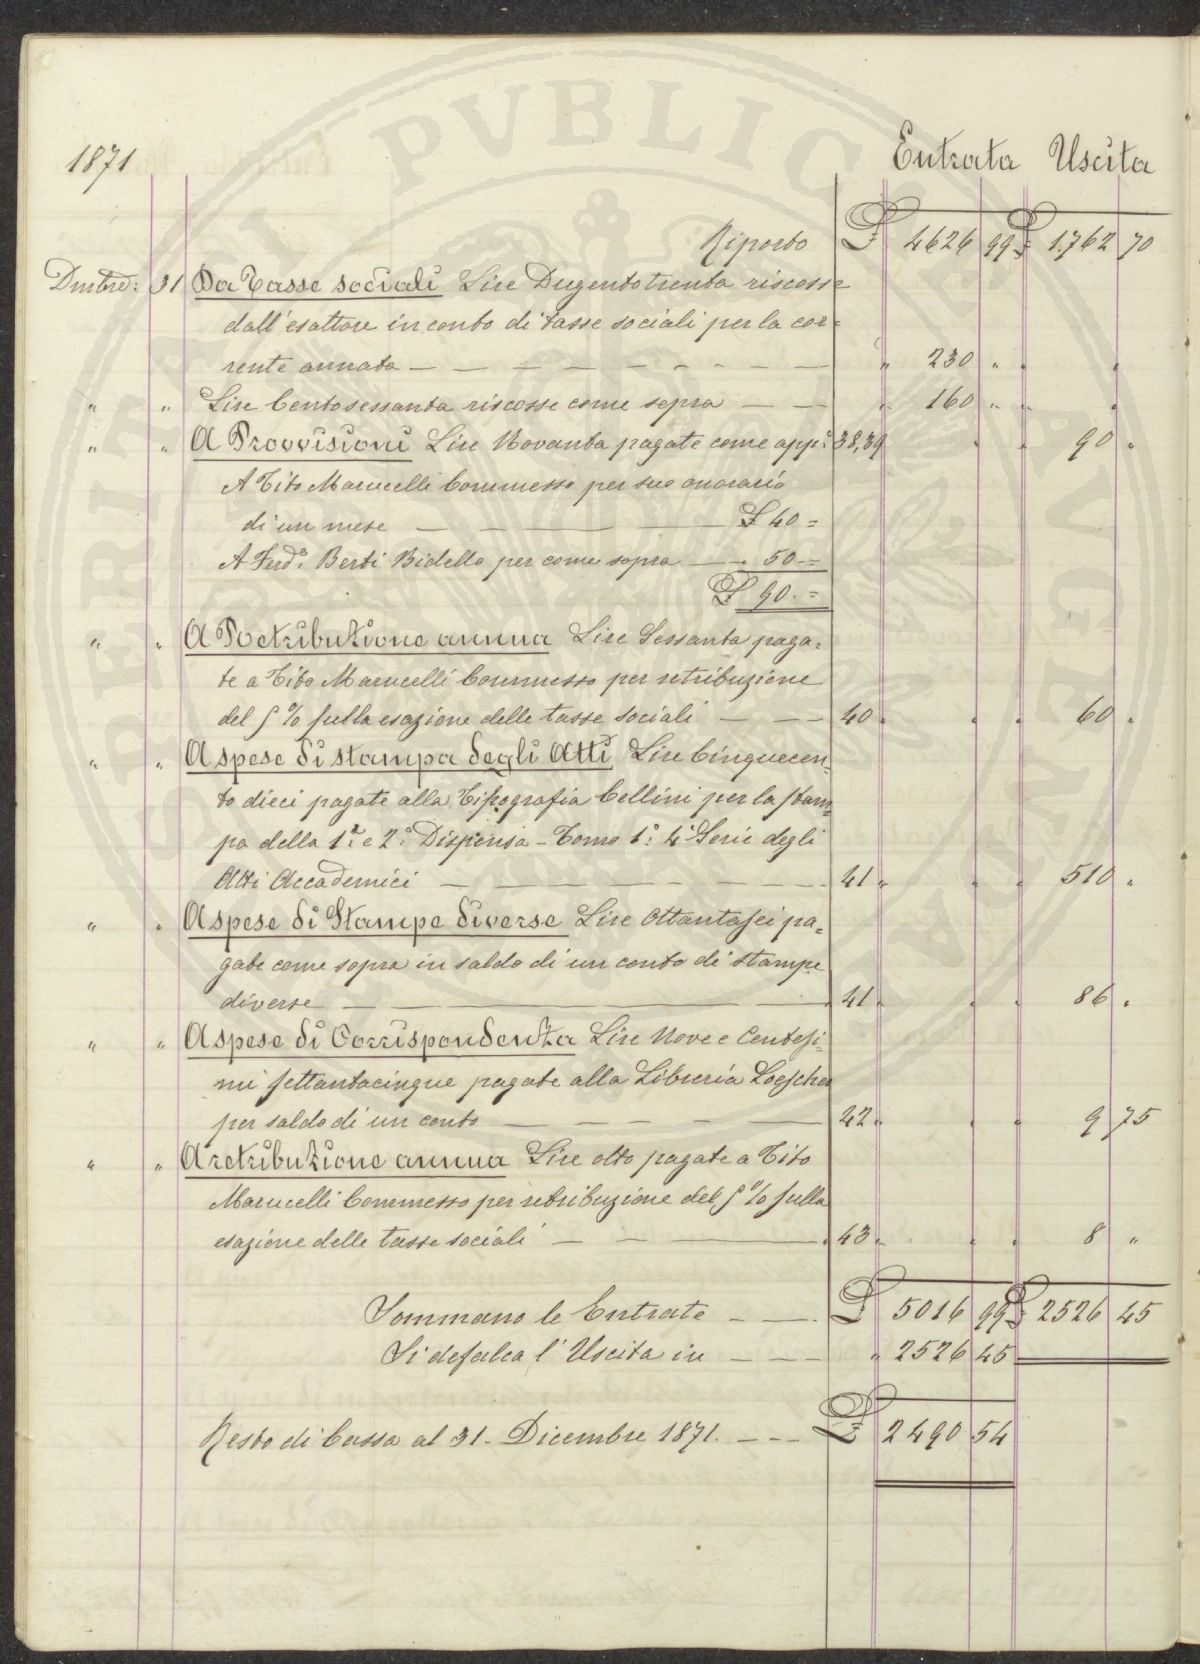 1871 Entrata Uscita
Riporto £ 4626 99 £ 1.762 70
Dmbre: 31 Da Tasse sociali Lire Dugentotrenta riscosse
dall'esattore in conto di tasse sociali per la cor=
rente annata — — — — — — — — — " 230 " " "
" " Lire Centosessanta riscosse come sopra — — " 160 " " "
" " A Provvisioni Lire Novanta pagate come app: 38,39 " " 90 "
A Tito Marucelli Commesso per suo onorario
di un mese — — — £ 40 =
A Ferd: Berti Bidello per come sopra — " 50.=
£ 90.=
" " A Retribuzione annua Lire Sessanta paga=
te a Tito Marucelli Commesso per retribuzione
del 5 % sulla esazione delle tasse sociali — — 40 " " " 60 "
" " A spese di stampa degli Atti Lire Cinquecen=
to dieci pagate alla Tipografia Cellini per la stam=
pa della 1ª e 2ª Dispensa - Tomo 1° 4ª Serie degli
Atti Accademici — — — — — — 41 " " " 510 "
" " A spese di Stampe diverse Lire Ottantasei pa=
gate come sopra in saldo di un conto di stampe
diverse — — — 41 " " " 86 "
" " A spese di Corrispondenza Lire Nove e Centesi=
mi settantacinque pagate alla Libreria Loescher
per saldo di un conto — — — — — 42 " " " 9 75
" " A retribuzione annua Lire otto pagate a Tito
Marucelli Commesso per retribuzione del 5 % sulla
esazione delle tasse sociali — — — 43 " " " 8 "
Sommano le Entrate — — £ 5016 99 £ 2526 45
Si defalca l'Uscita in — — — " 2526 45
Resto di Cassa al 31. Dicembre 1871. — — — £ 2490 54
PVBLICAE